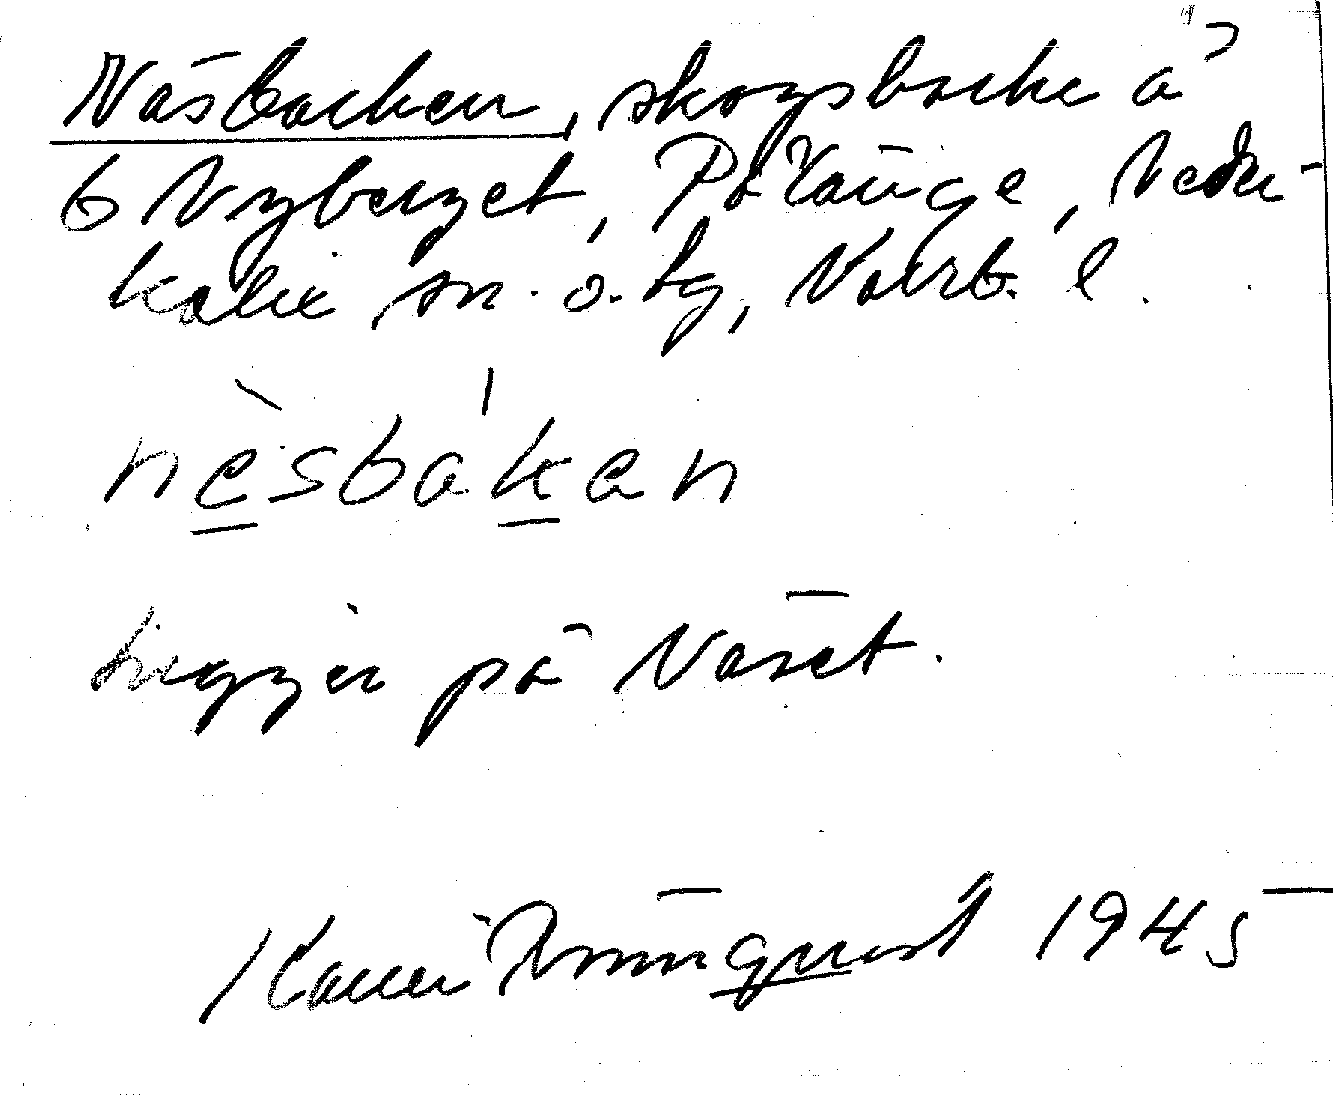 Näsbacken, skogsbacke å
6 Nyberget, Påläinge, Neder-
kalix sn. o. tg, Norrb. l.
nèsbákan
ligger på Näset.
Karin Rönnquist 1945